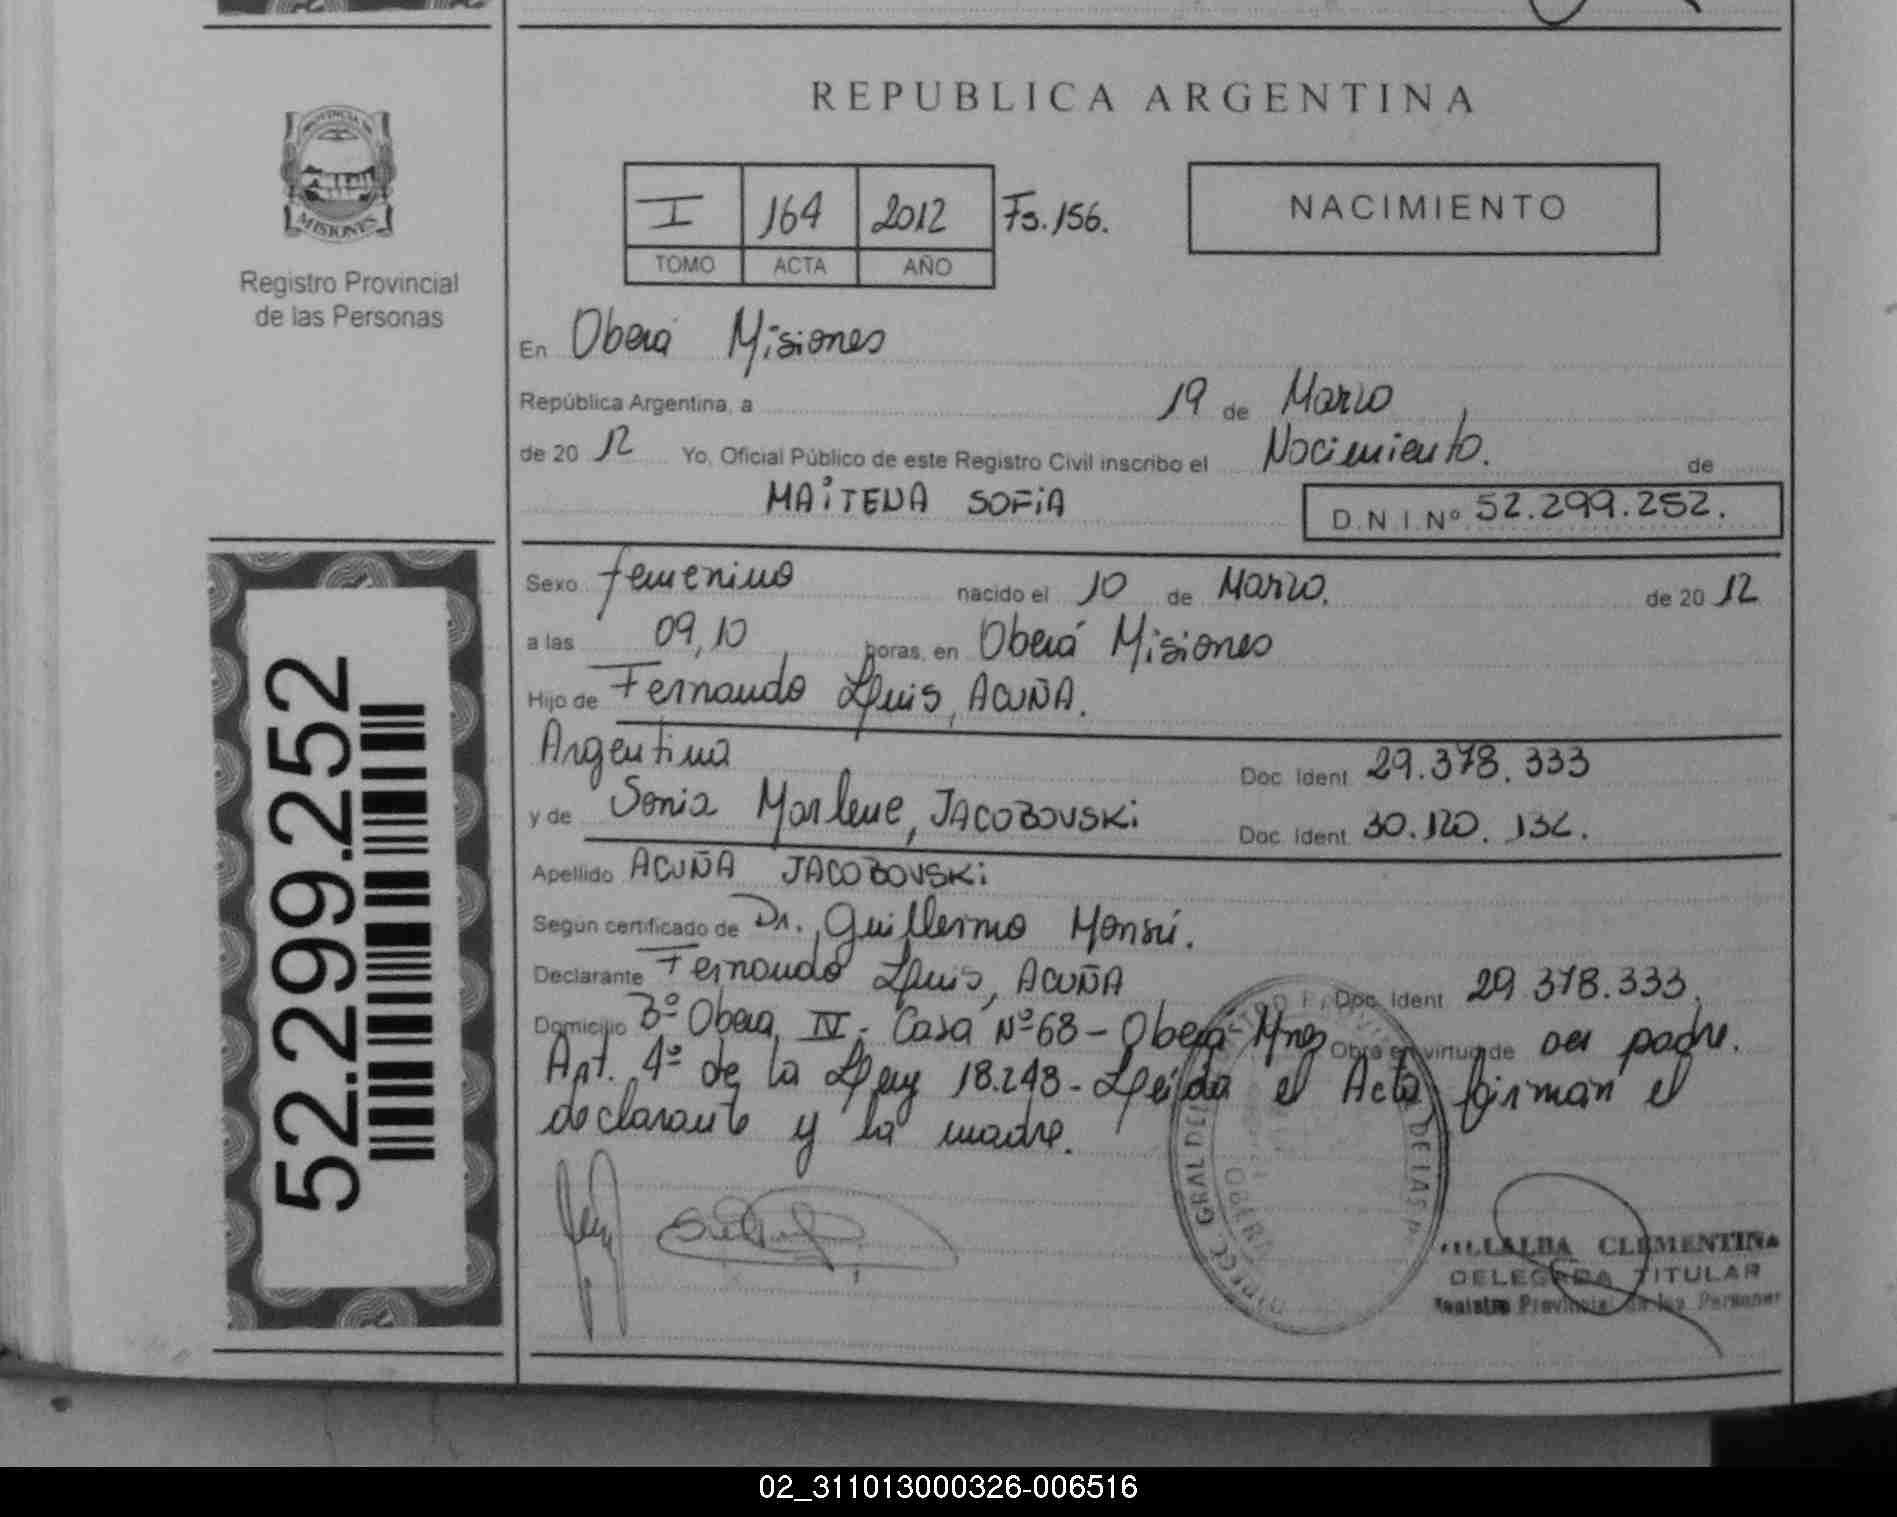 REPUBLICA ARGENTINA
PROVINCIA DE
MISIONES
Registro Provincial
de las Personas
I 164 2012 Fs. 156.
TOMO ACTA AÑO
NACIMIENTO
En Oberá Misiones
República Argentina, a 19 de Marzo
de 20 12 Yo, Oficial Público de este Registro Civil inscribo el Nacimiento. de
MAiTENA SOFiA D.N.I. Nº 52.299.252.
Sexo femenino nacido el 10 de Marzo. de 20 12
a las 09,10 horas, en Oberá Misiones
Hijo de Fernando Luis, ACUÑA.
Argentina Doc. Ident. 29.378.333
y de Sonia Marlene, JACOBOVSKi Doc. Ident. 30.120.132.
Apellido ACUÑA JACOBOVSKi
Según certificado de Dr. Guillermo Monsú.
Declarante Fernando Luis, ACUÑA Doc. Ident. 29.378.333.
Domicilio Bº Oberá IV - Casa Nº 68 - Oberá Mnes Obra en virtud de ser padre.
Art. 4º de la Ley 18.248 - Leída el Acta firman el
declarante y la madre.
52.299.252
OBERA
VILLALBA CLEMENTINA
DELEGADA TITULAR
Registro Provincial de las Personas
02_311013000326-006516